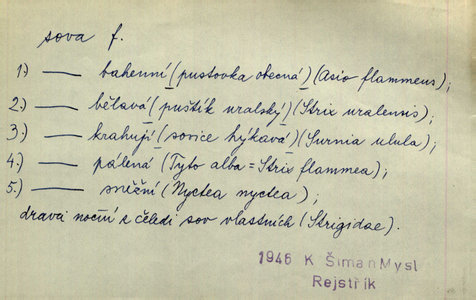 sova f.
1.) —— bahenní (pustovka obecná) (Asio flammeus);
2.) —— bělavá (puštík uralský) (Strix uralensis);
3.) —— krahují (sovice hýkavá) (Surnia ulula);
4.) —— pálená (Tyto alba = Strix flammea);
5.) —— sněžní (Nyctea nyctea);
dravá noční z čeledi sov vlastních (Strigidae).
1946 K ŠimanMysl
Rejstřík